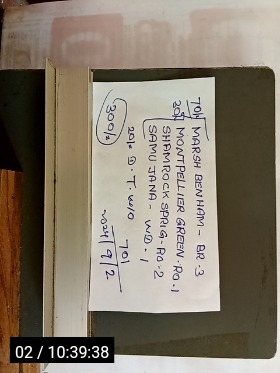 70/- MARSH BENHAM - BR.3
20/- MONTPELLIER GREEN - RO.1
SHAMROCK SPRIG - RO.2
SAMU JANA - WD.1
20/- D.T. W/O
300/-
701
9/2
02 / 10:39:38